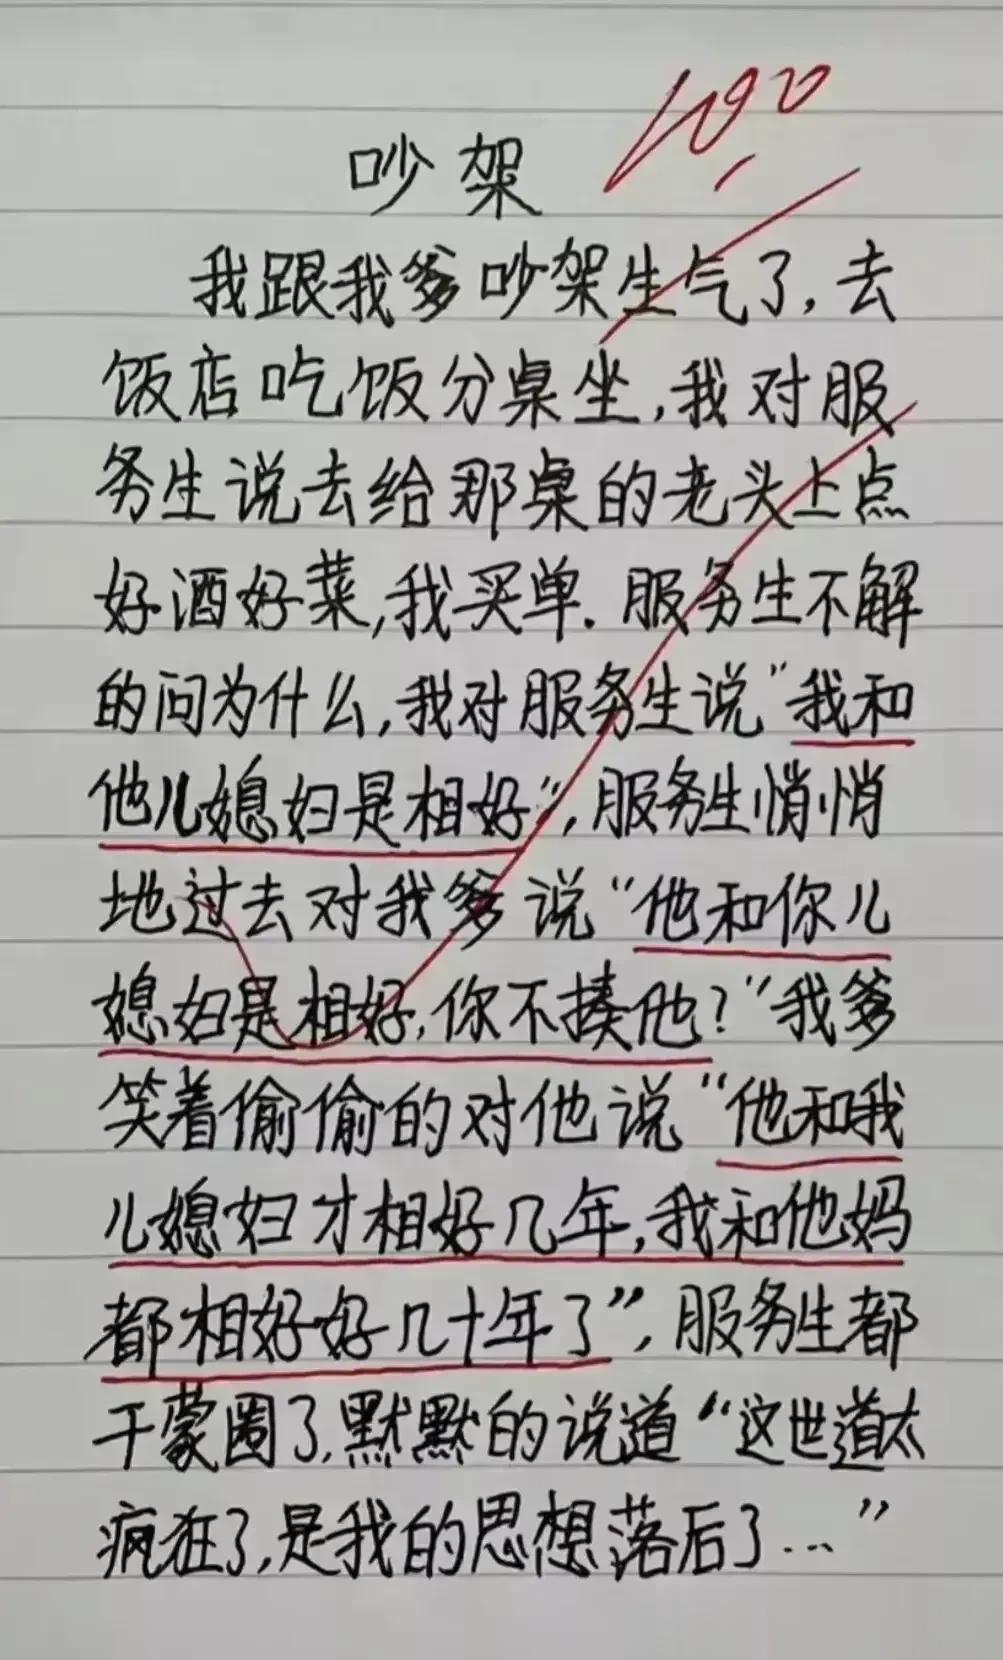 100
吵架
我跟我爹吵架生气了,去
饭店吃饭分桌坐,我对服
务生说去给那桌的老头上点
好酒好菜,我买单.服务生不解
的问为什么,我对服务生说"我和
他儿媳妇是相好",服务生悄悄
地过去对我爹说"他和你儿
媳妇是相好,你不揍他?"我爹
笑着偷偷的对他说"他和我
儿媳妇才相好几年,我和他妈
都相好好几十年了",服务生都
干蒙圈了,默默的说道"这世道太
疯狂了,是我的思想落后了..."